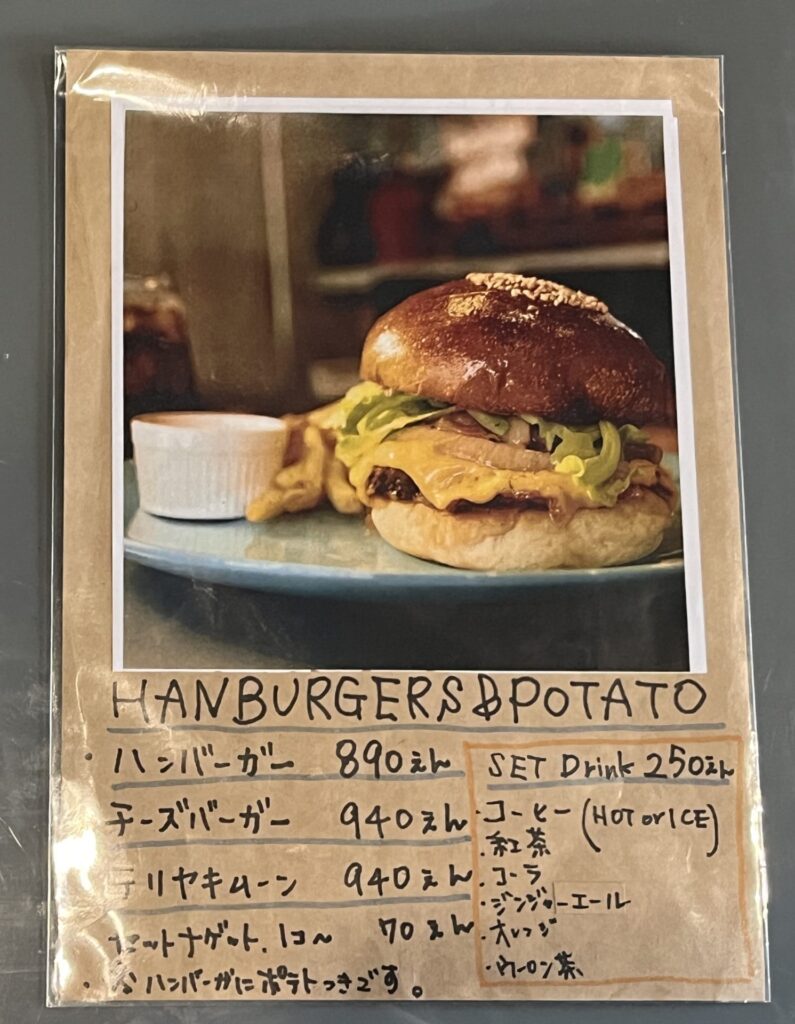 HANBURGERS&POTATO
・ハンバーガー 890えん
チーズバーガー 940えん
テリヤキムーン 940えん
セットナゲット.1コ〜 70えん
・各ハンバーガにポテトつきです。
SET Drink 250えん
・コーヒー (HOT or ICE)
・紅茶
・コーラ
・ジンジャーエール
・オレンジ
・ウーロン茶